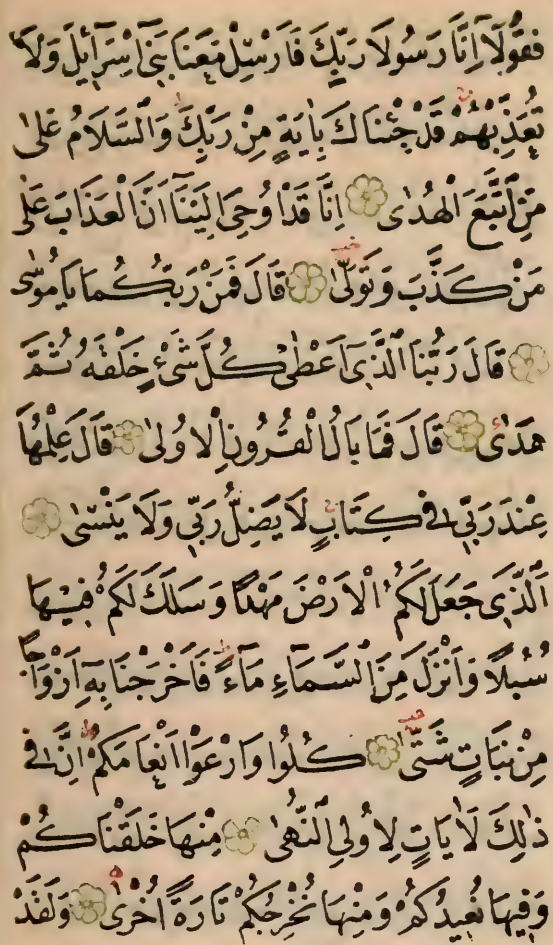 فَقُولَآ اِنَّا رَسُولَا رَبِّكَ فَاَرْسِلْ مَعَنَا بَنٖٓى اِسْرَآئٖلَ وَلَا
تُعَذِّبْهُمْ قَدْ جِئْنَاكَ بِاٰيَةٍ مِنْ رَبِّكَ وَالسَّلَامُ عَلٰى
مَنِ اتَّبَعَ الْهُدٰى اِنَّا قَدْ اُوحِىَ اِلَيْنَآ اَنَّ الْعَذَابَ عَلٰى
مَنْ كَذَّبَ وَتَوَلّٰى قَالَ فَمَنْ رَبُّكُمَا يَا مُوسٰى
قَالَ رَبُّنَا الَّذٖٓى اَعْطٰى كُلَّ شَىْءٍ خَلْقَهُ ثُمَّ
هَدٰى قَالَ فَمَا بَالُ الْقُرُونِ الْاُولٰى قَالَ عِلْمُهَا
عِنْدَ رَبّٖى فٖى كِتَابٍ لَا يَضِلُّ رَبّٖى وَلَا يَنْسٰى
اَلَّذٖى جَعَلَ لَكُمُ الْاَرْضَ مَهْدًا وَسَلَكَ لَكُمْ فٖيهَا
سُبُلًا وَاَنْزَلَ مِنَ السَّمَآءِ مَآءً فَاَخْرَجْنَا بِهٖٓ اَزْوَاجًا
مِنْ نَبَاتٍ شَتّٰى كُلُوا وَارْعَوْا اَنْعَامَكُمْ اِنَّ فٖى
ذٰلِكَ لَاٰيَاتٍ لِاُولِى النُّهٰى مِنْهَا خَلَقْنَاكُمْ
وَفٖيهَا نُعٖيدُكُمْ وَمِنْهَا نُخْرِجُكُمْ تَارَةً اُخْرٰى وَلَقَدْ